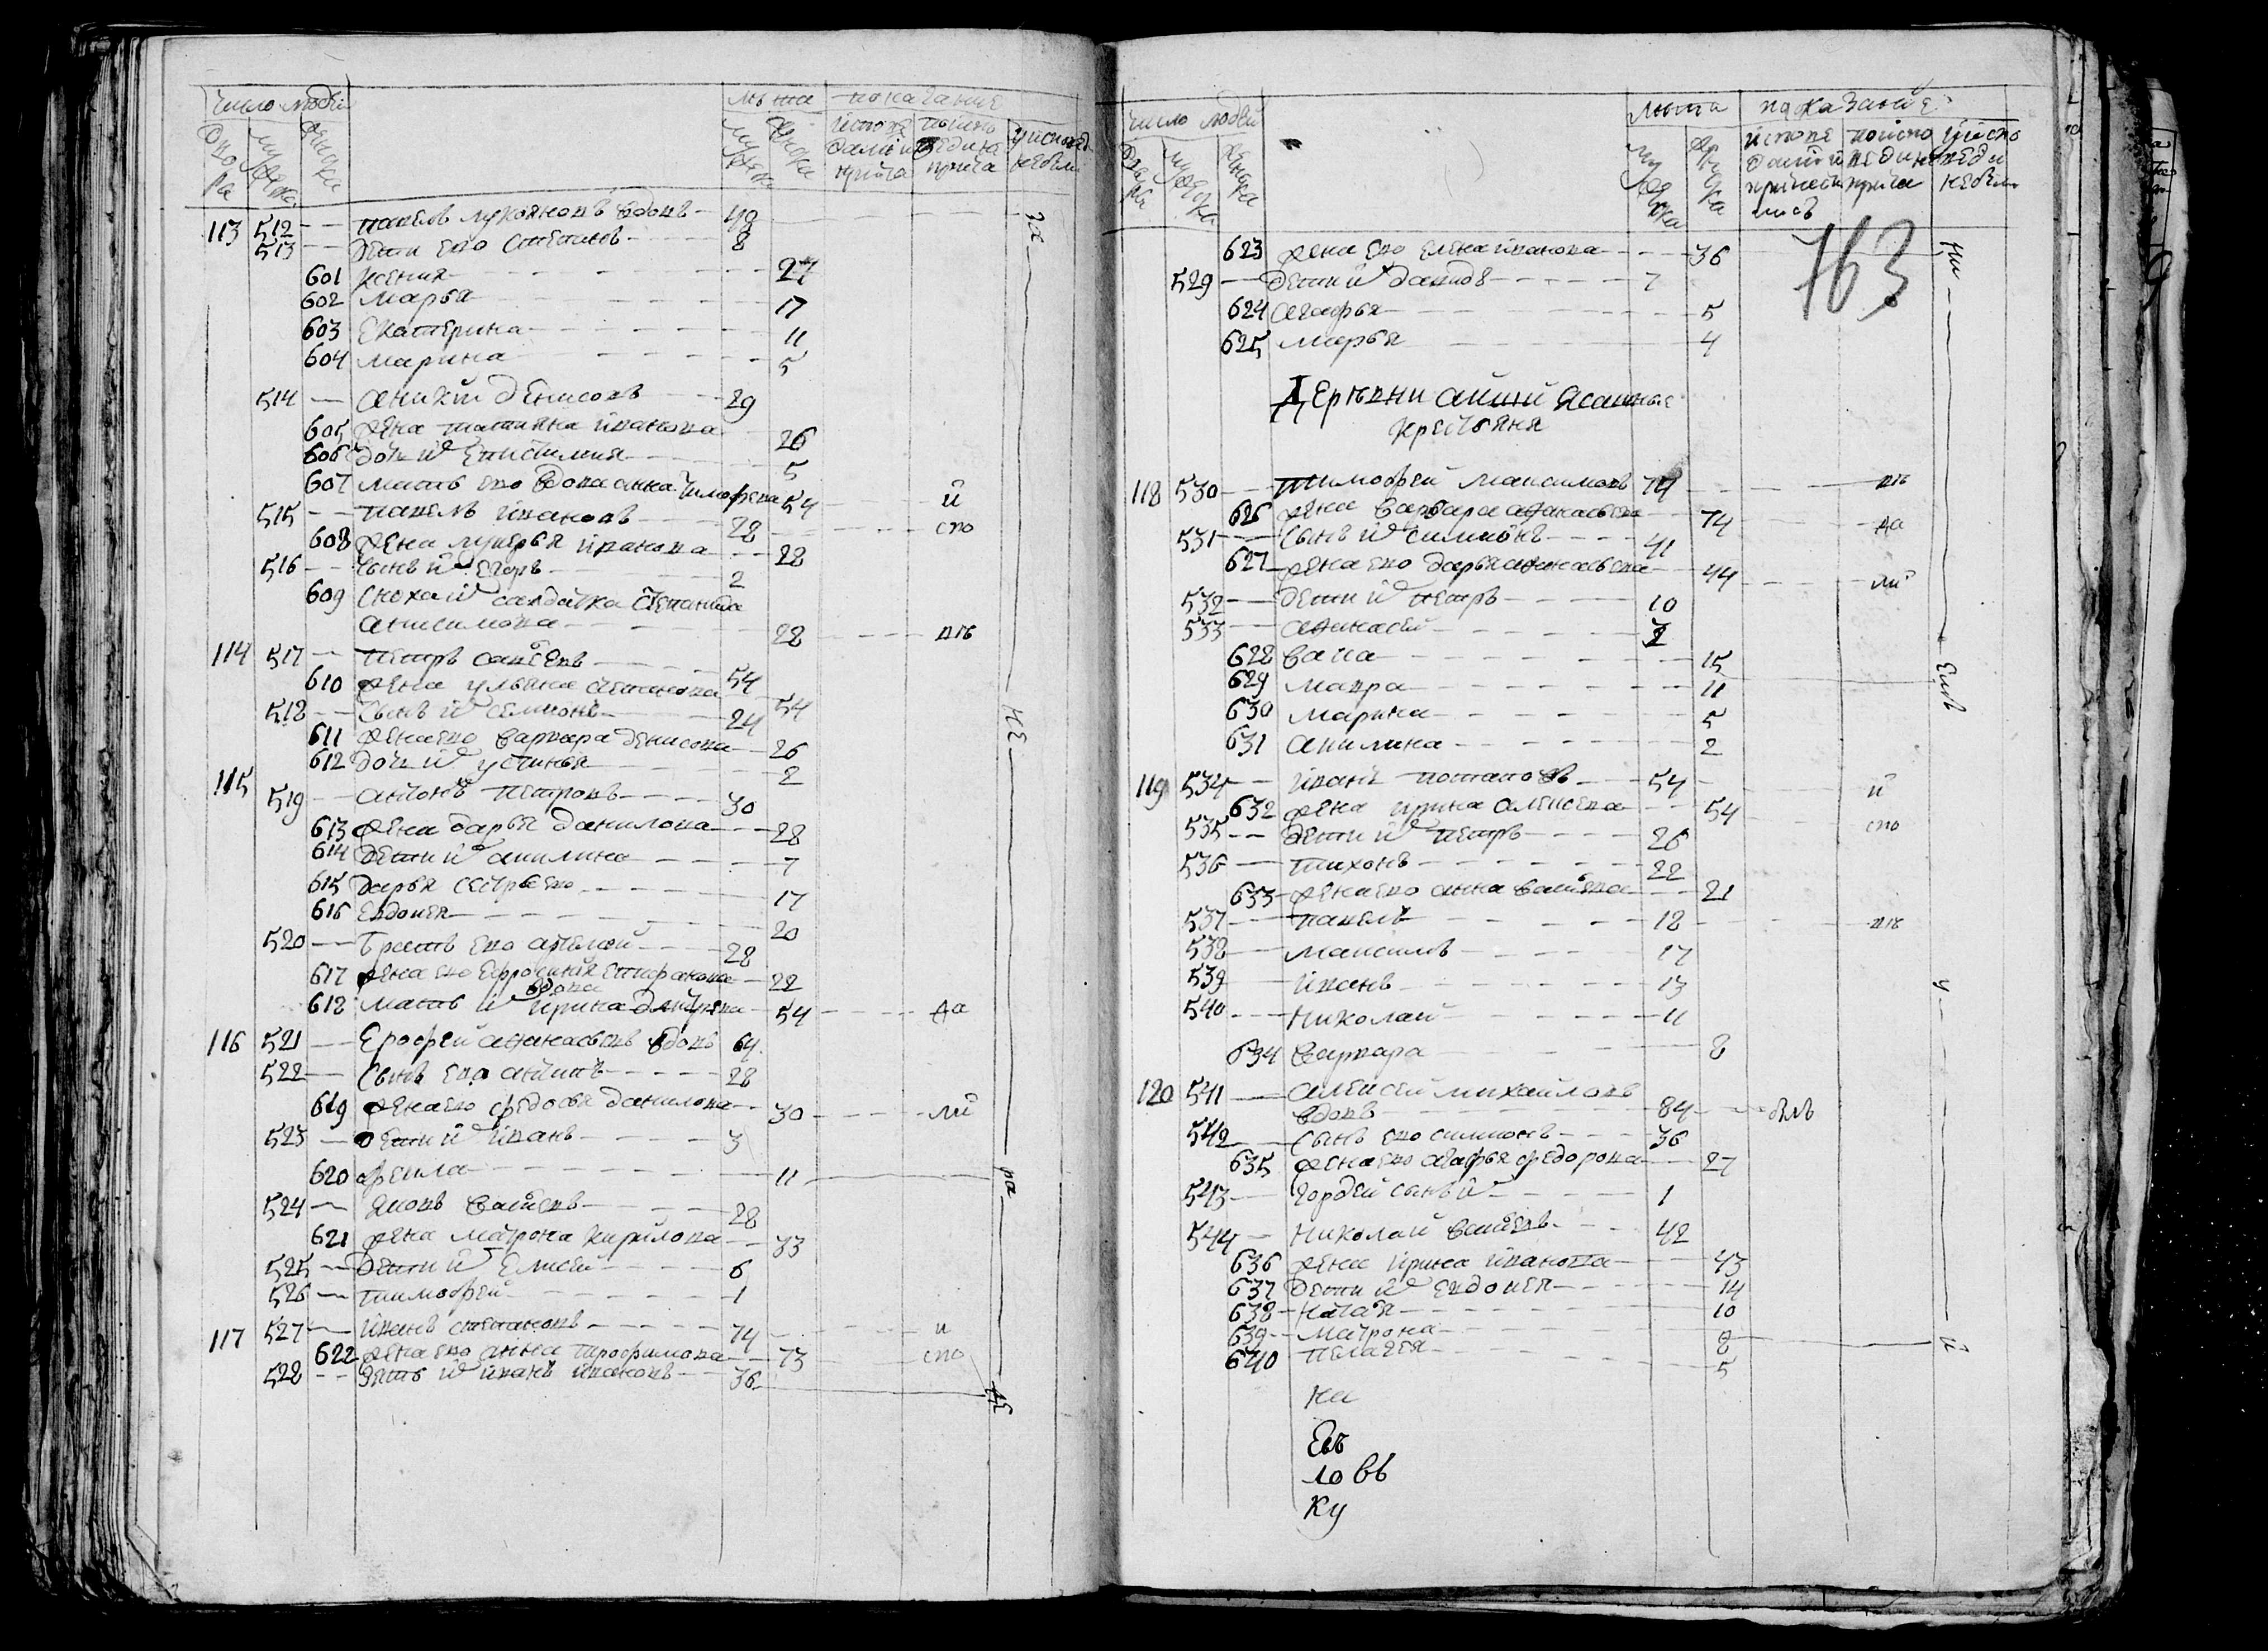 Число людей
лѣта показание
двора мужска женска
мужска женска
113 512 павелъ лукояновъ вдовъ 49
513 дети ево степанъ 8
601 ксения 27
602 марья 17
603 екатерина 11
604 марина 5
514 аникий денисовъ 29
605 жена татияна иванова 26
606 дочь их епистимия 5
607 мать ево вдова анна тимофева 54 и
515 павелъ ивановъ 28 спо
608 жена лукерья иванова 28
516 сынъ их егоръ 2
609 сноха их салдатка степанида
анисимова 28 вѣ
114 517 петръ савѣевъ 54
610 жена ульяна степанова 54
518 сынъ их семионъ 24
611 жена ево варвара денисова 26
612 дочь их устинья 2
115 519 антонъ петровъ 30
613 жена дарья данилова 28
614 дети их акилина 7
615 дарья сестра ево 17
616 евдокея 20
520 братъ ево артемей 28
617 жена ево ефросиния епифанова 22
618 мать их вдова ирина дмитрева 54 да
116 521 Ерофей афанасьевъ вдовъ 64
522 сынъ ево антипъ 28
619 жена ево федосья данилова 30 ли
523 дети их иванъ 3
620 фекла 11
524 яковъ васильевъ 28
621 жена матрона кирилова 33
525 дети их елисей 6
526 тимофей 1
117 527 иванъ степановъ 74 и
622 жена ево анна трофимова 73 спо
528 зять их иванъ ивановъ 36
за
не
ра
Число людей
лѣта показание
163
623 жена ево елена иванова 36
529 дети их давидъ 7
624 агафья 5
625 марья 4
Деревни ашпи ясашные
крестьяня
118 530 тимофей максимовъ 74 вѣ
626 жена варвара афанасьева 74 да
531 сынъ их симионъ 41
627 жена ево дарья афанасьева 44 ли
532 дети их петръ 10
533 афанасей
628 васа 15
629 мавра 11
630 марина 5
631 акилина 2
119 534 иванъ потаповъ 54 и
632 жена ирина алексева 54 спо
535 дети их петръ 26
536 тихонъ 22
633 жена ево анна васильева 21
537 павелъ 18 вѣ
538 максимъ 17
539 иванъ 13
540 николай 11
634 варвара 8
120 541 алексей михайловъ
вдовъ 84 былъ
542 сынъ ево симионъ 36
635 жена ево агафья федорова 27
543 гордей сынъ их 1
544 николай васильевъ 42
636 жена ирина иванова 43
637 дети их евдокея 14
638 наталя 10
639 матрона 8
640 пелагея 5
ни
у
и